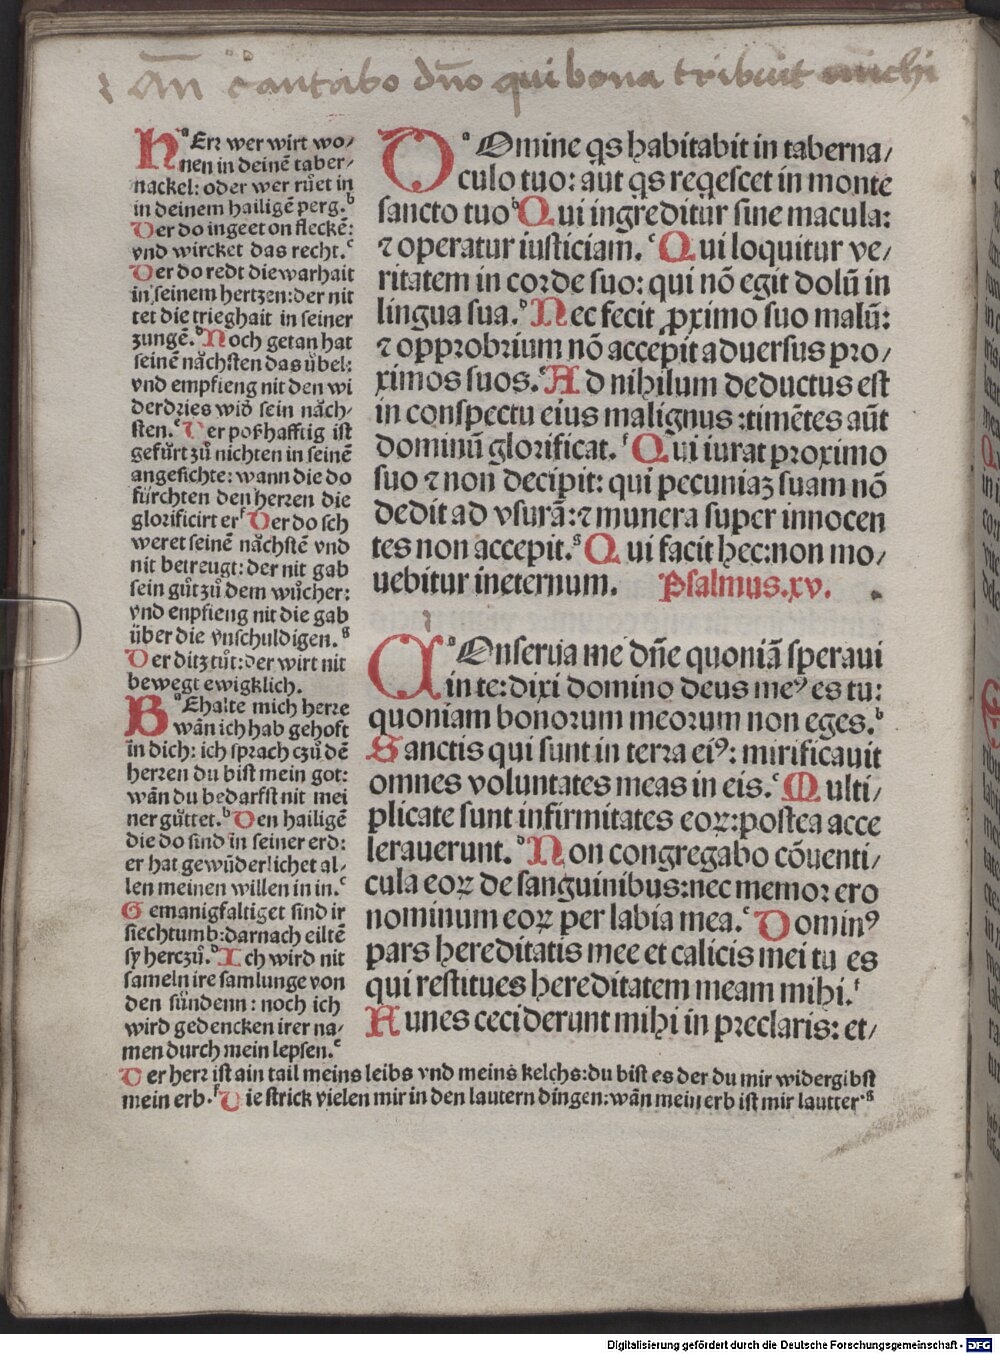 Añ cantabo dño qui bona tribuit michi
HErꝛ wer wirt wo/
nen in deinē taber/
nackel: oder wer růet in
in deinem hailigē perg.ᵇ
Der do ingeet on fleckē:
vnd wircket das recht.ᶜ
Der do redt die warhait
in seinem hertzen: der nit
tet die trieghait in seiner
zungē.ᵈ Noch getan hat
seinē nåchsten das ůbel:
vnd empfieng nit den wi
derdries wið sein nåch/
sten.ᵉ Der poßhafftig ist
gefůrt zů nichten in seinē
angesichte: wann die do
fůrchten den herren die
glorificirt erᶠ Der do sch
weret seinē nåchstē vnd
nit betreugt: der nit gab
sein gůt zů dem wůcher:
vnd enpfieng nit die gab
ůber die vnschuldigen.ᵍ
Der ditz tůt: der wirt nit
bewegt ewigklich.
BEhalte mich herre
wān ich hab gehoft
in dich: ich sprach czů dē
herren du bist mein got:
wān du bedarfst nit mei
ner gůttet.ᵇ Den hailigē
die do sind in seiner erd:
er hat gewūderlichet al/
len meinen willen in in.ᶜ
Gemanigfaltiget sind ir
siechtumb: darnach eiltē
sy herczů.ᵈ Ich wird nit
sameln ire samlunge von
den sůndenn: noch ich
wird gedencken irer na/
men durch mein lepsen.ᵉ
DOmine qs habitabit in taberna/
culo tuo: aut qs reqescet in monte
sancto tuoᵇ Qui ingreditur sine macula:
⁊ operatur iusticiam.ᶜ Qui loquitur ve/
ritatem in corde suo: qui nō egit dolū in
lingua sua.ᵈ Nec fecit ꝓximo suo malū:
⁊ opprobrium nō accepit aduersus pro/
ximos suos.ᵉ Ad nihilum deductus est
in conspectu eius malignus: timētes aūt
dominū glorificat.ᶠ Qui iurat proximo
suo ⁊ non decipit: qui pecuniaꝫ suam nō
dedit ad vsurā: ⁊ munera super innocen
tes non accepit.ᵍ Qui facit hec: non mo/
uebitur ineternum. Psalmus.xv.
COnserua me dñe quoniā speraui
in te: dixi domino deus meꝰ es tu:
quoniam bonorum meorum non eges.ᵇ
Sanctis qui sunt in terra eiꝰ: mirificauit
omnes voluntates meas in eis.ᶜ Multi/
plicate sunt infirmitates eoꝝ: postea acce
lerauerunt.ᵈ Non congregabo cōuenti/
cula eoꝝ de sanguinibus: nec memor ero
nominum eoꝝ per labia mea.ᵉ Dominꝰ
pars hereditatis mee et calicis mei tu es
qui restitues hereditatem meam mihi.ᶠ
Funes ceciderunt mihi in preclaris: et/
Der herꝛ ist ain tail meins leibs vnd meins kelchs: du bist es der du mir widergibst
mein erb.ᶠ Die strick vielen mir in den lautern dingen: wān mein erb ist mir lautter.ᵍ
Digitalisierung gefördert durch die Deutsche Forschungsgemeinschaft - DFG